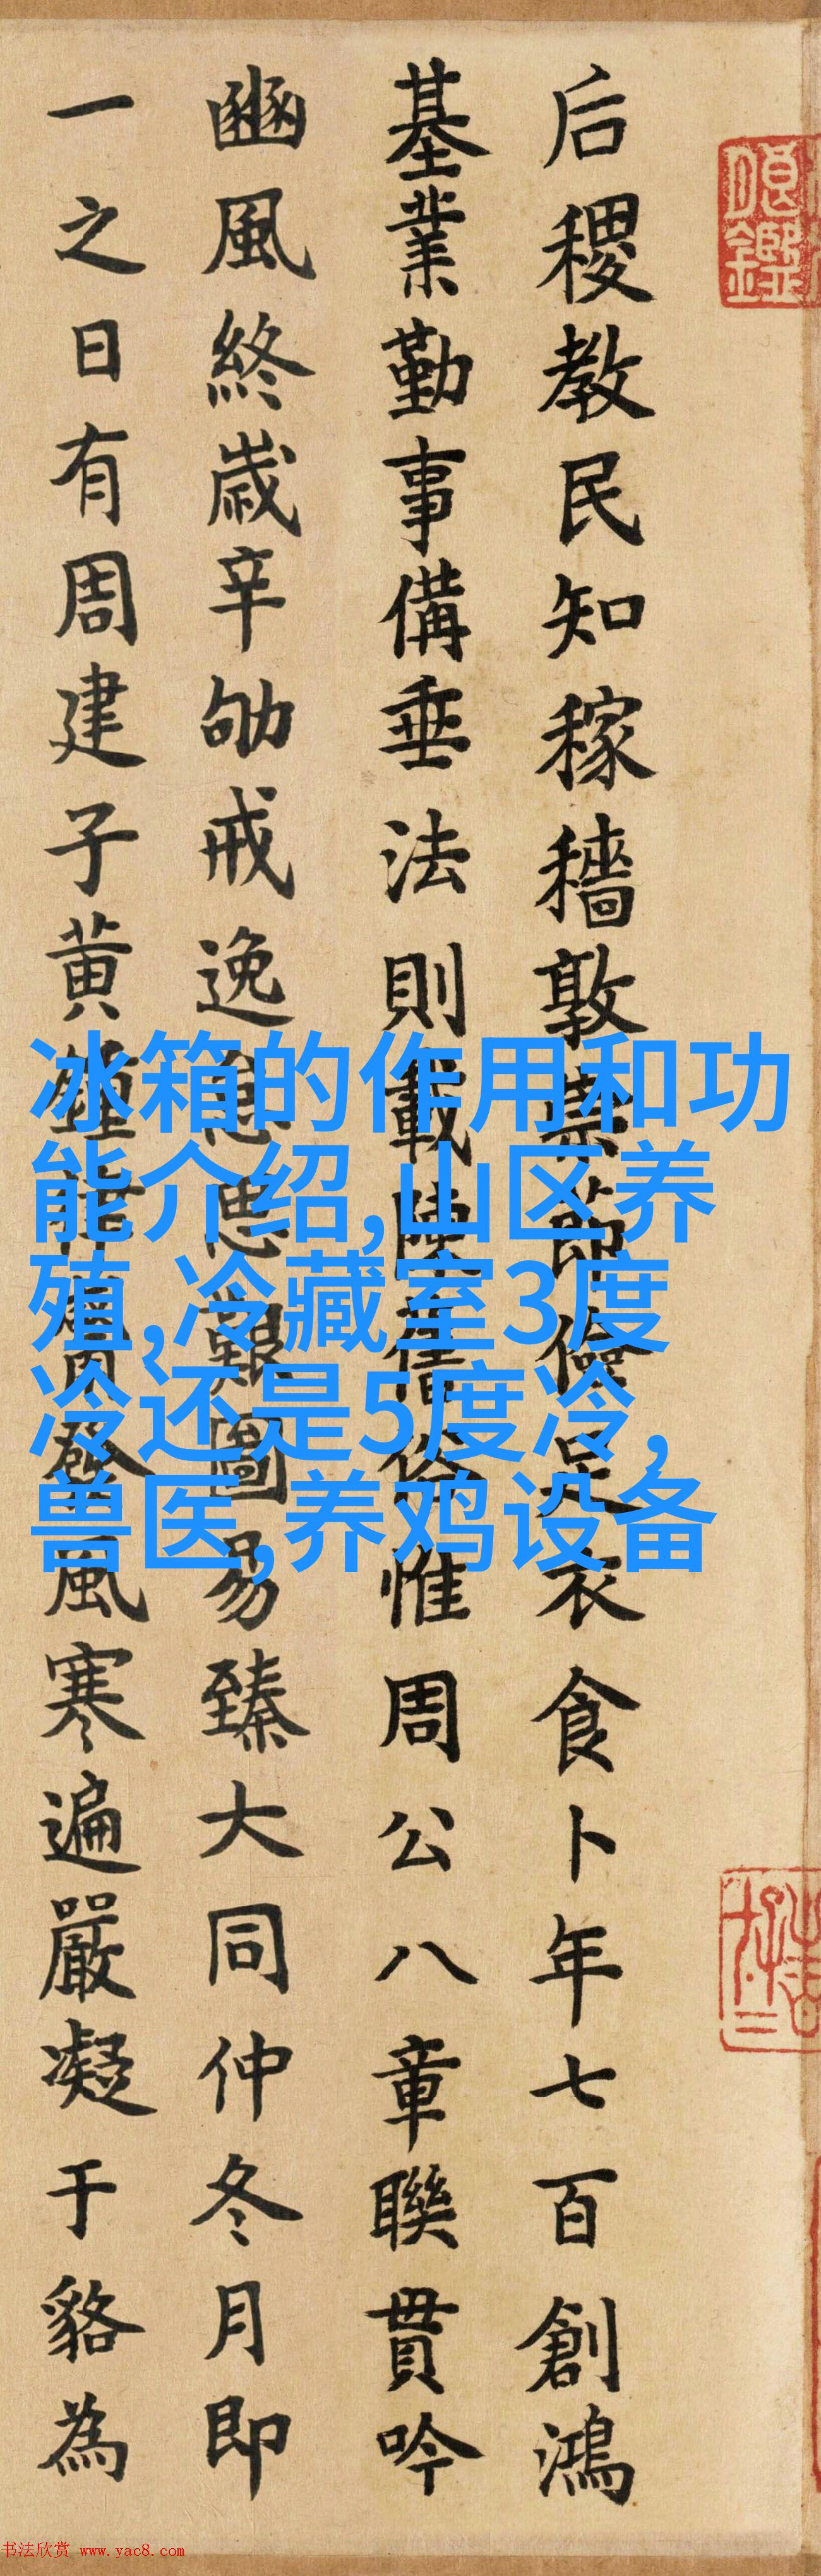 后稷教民知稼穡敦崇節儉足衣食卜年七百創鴻
基業勤事備垂法則載陳俗惟周公八章聯貫吟
豳風終歲辛劬戒逸怠思艱圖易臻大同仲冬月即
一之日有周建子黃鐘律觱發風寒遍嚴凝于貉為
冰箱的作用和功
能介绍,山区养
殖,冷藏室3度
冷还是5度冷,
兽医,养鸡设备
书法欣赏 www.yac8.com